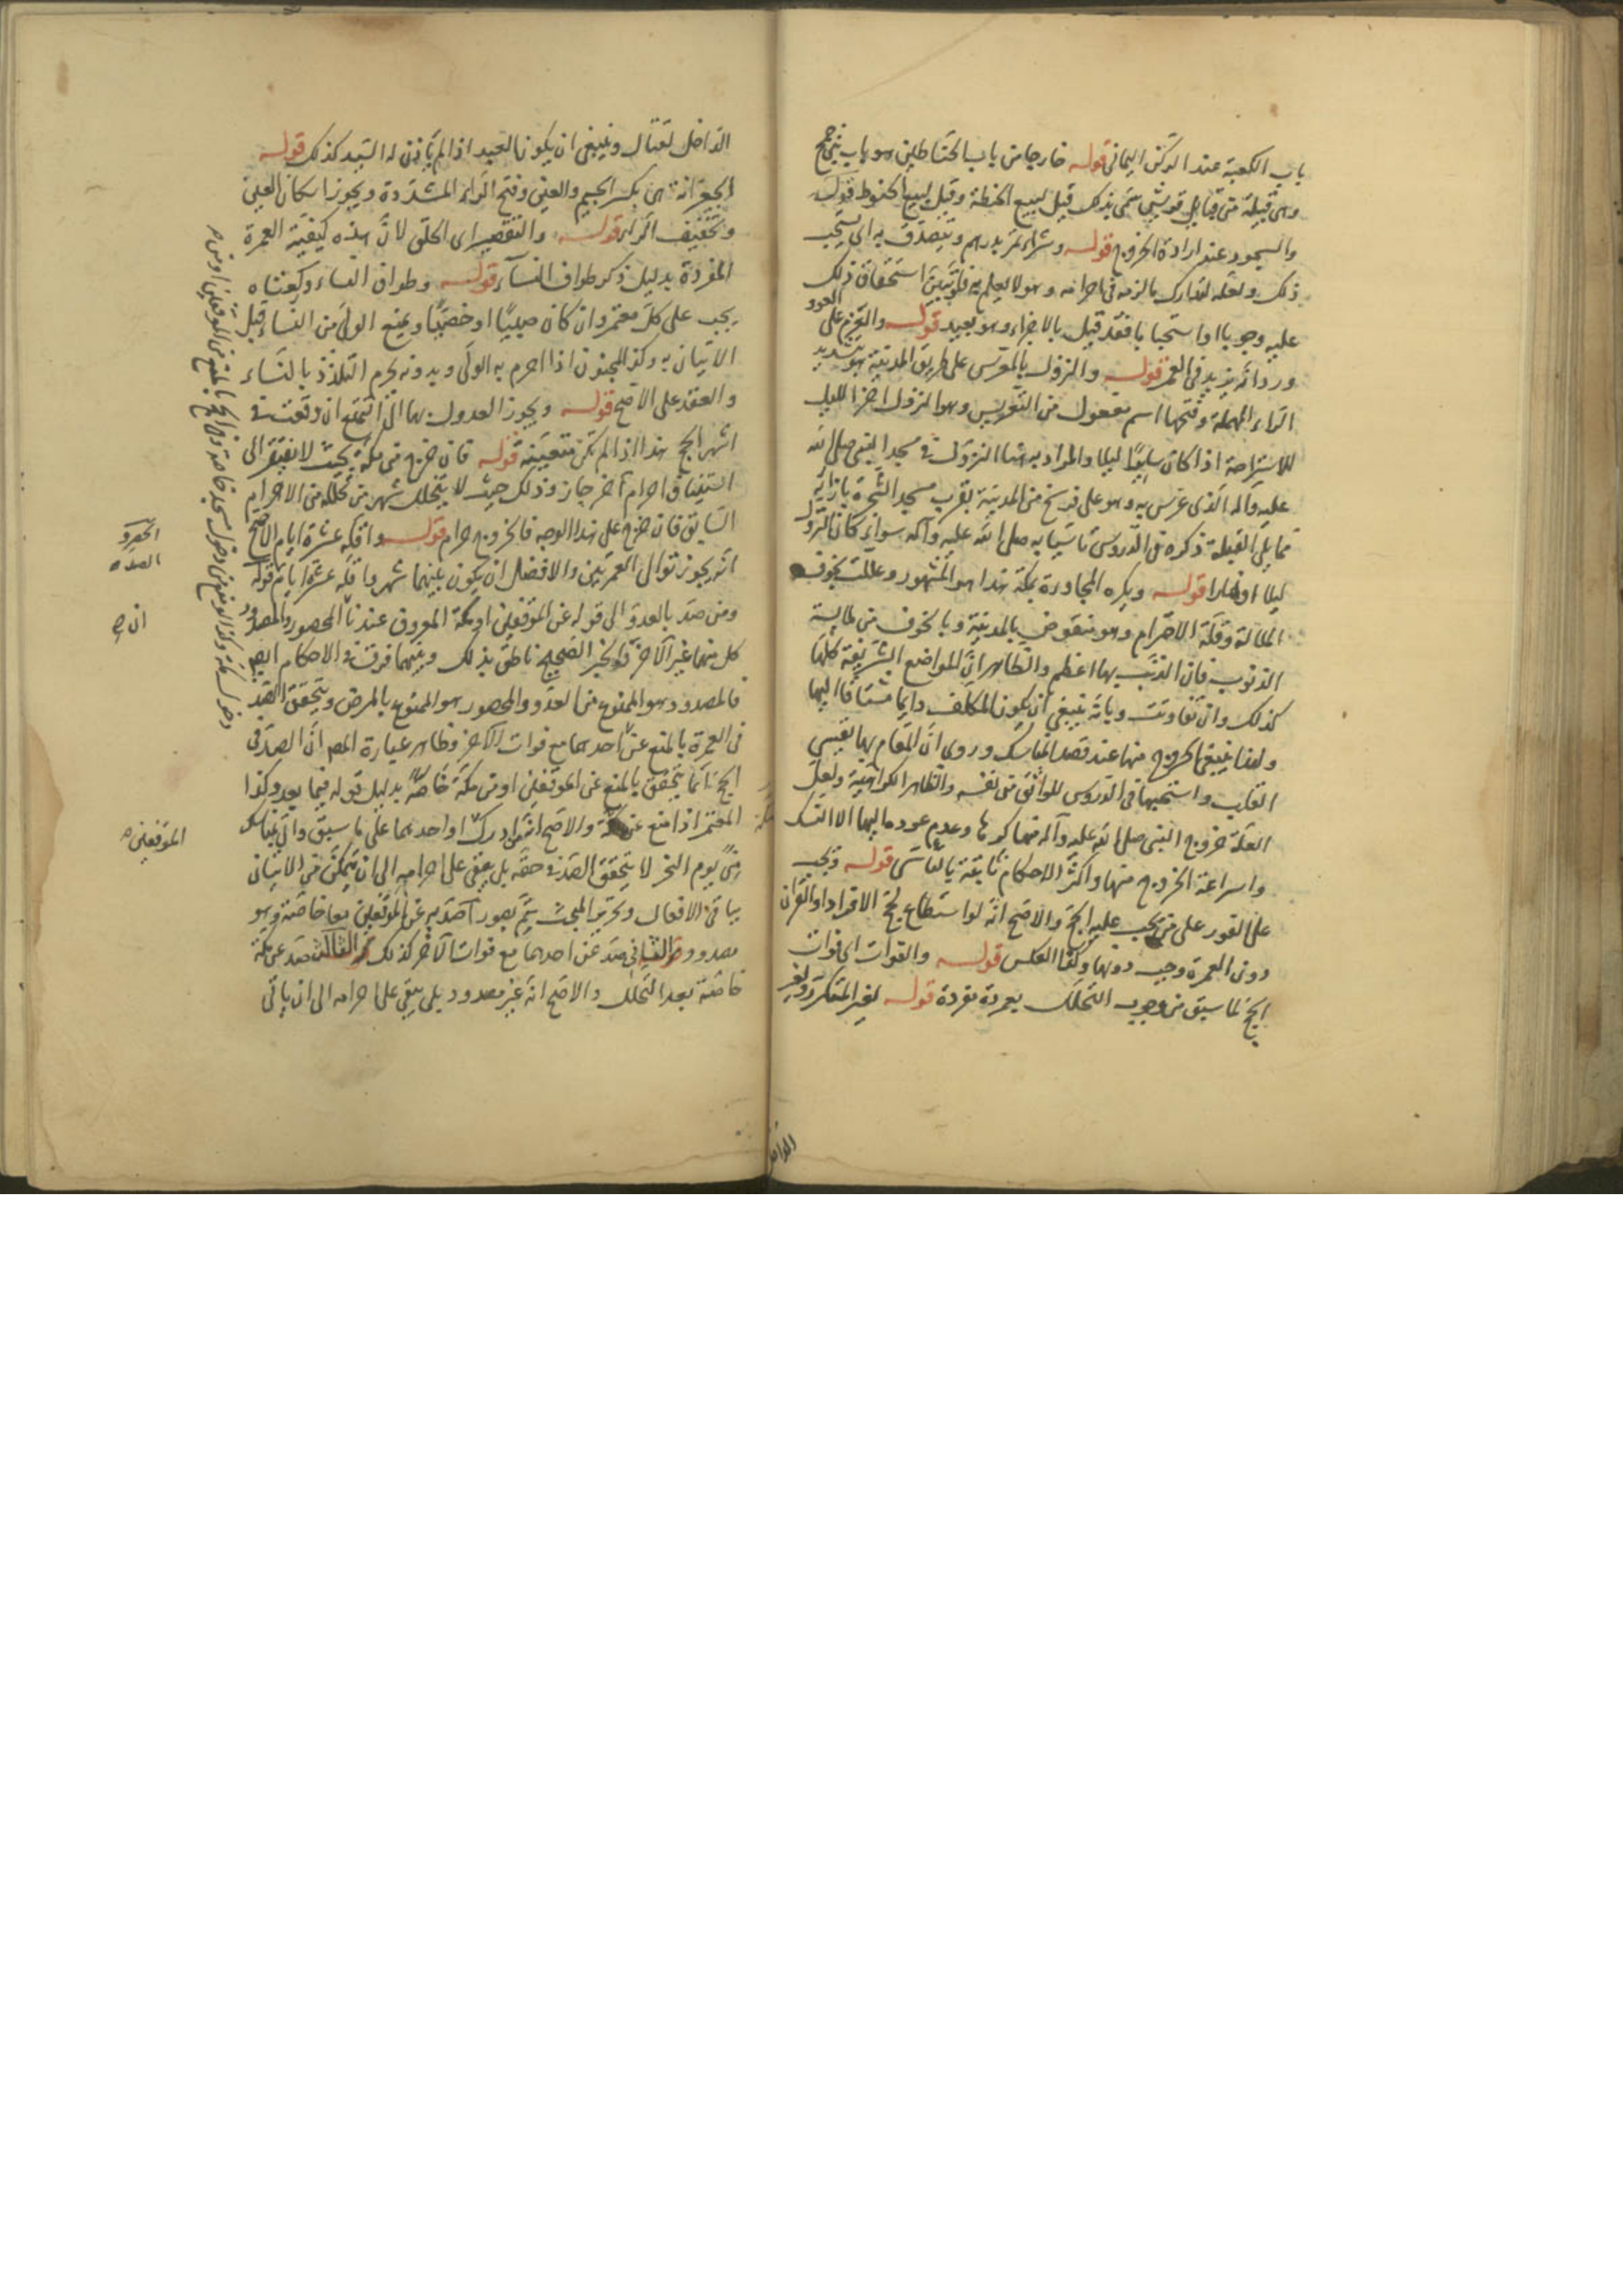 باب الكعبة عند الركن اليماني قوله خارجا من باب الحناطين هو باب بني جمح
وهي قبيلة من قبايل قريش سمي بذلك قيل لبيع الحنطة وقيل لبيع الحنوط قوله
والسجود عند ارادة الخروج قوله وشراء تمر بدرهم ويتصدق به اي يستحب
ذلك ولعله لتدارك ما لزمه في احرامه وهو لا يعلم به فلو تبين استحقاق ذلك
عليه وجوبا او استحبابا فقد قيل بالاجزاء وهو بعيد قوله والعزم على العود
ورد انه يزيد في العمر قوله والنزول بالمعرس على طريق المدينة هو بتشديد
الراء المهملة وفتحها اسم مفعول من التعريس وهو النزول اخر الليل
للاستراحة اذا كان سايرا ليلا والمراد به هنا النزول في مسجد النبي صلى الله
عليه وآله الذي عرس به وهو على فرسخ من المدينة بقرب مسجد الشجرة بازائه
مما يلي القبلة ذكره في الدروس تاسيا به صلى الله عليه وآله سواء كان النزول
ليلا او نهارا قوله ويكره المجاورة بمكة هذا هو المشهور وعللت بخوف
الملالة وقلة الاحترام وهو منقوض بالمدينة وبالخوف من ملابسة
الذنوب فان الذنب بها اعظم والظاهر ان المواضع الشريفة كلها
كذلك وان تفاوتت وبانه ينبغي ان يكون المكلف دايما مشتاقا اليها
ولهذا ينبغي الخروج منها عند قصد المناسك وروي ان المقام بها يقسي
القلب واستحبها في الدروس للواثق من نفسه والظاهر الكراهية ولعل
العلة خروج النبي صلى الله عليه وآله منها كرها وعدم عوده اليها الا للنسك
واسراعة الخروج منها واكثر الاحكام ثابتة بالتاسي قوله وتجب
على الفور على من يجب عليه الحج والاصح انه لو استطاع لحج الافراد او القران
دون العمرة وجب دونها وكذا العكس قوله والفوات اي فوات
الحج لما سبق من وجوب التحلل بعمرة مفردة قوله لغير المتكرر ولغير
الداخل
الداخل لقتال وينبغي ان يكون العبد اذا لم ياذن له السيد كذلك قوله
الجعرانة هي بكسر الجيم والعين وفتح الراء المشددة ويجوز اسكان العين
وتخفيف الراء قوله والتقصير اي الحلق لان هذه كيفية العمرة
المفردة بدليل ذكر طواف النساء قوله وطواف النساء وركعتاه
يجب على كل معتمر وان كان صبيا او خصيا ويمنع الولي من النساء قبل
الاتيان به وكذا المجنون اذا احرم به الولي وبدونه يحرم التلذذ بالنساء
والعقد على الاصح قوله ويجوز العدول بها الى التمتع ان وقعت في
اشهر الحج هذا اذا لم تكن متعينة قوله فان خرج من مكة بحيث لا يفتقر الى
استيناف احرام آخر جاز وذلك حيث لا يتخلل شهر من تحلله من الاحرام
السابق فان خرج على هذا الوجه فالخروج حرام قوله واقله عشرة ايام الاصح
انه يجوز توالي العمرتين والافضل ان يكون بينهما شهر واقله عشرة ايام قوله
ومن صد بالعدو الى قوله عن الموقفين او مكة المعروف عندنا ان المحصور والمصدود
كل منهما غير الآخر والخبر الصحيح ناطق بذلك وبينهما فرق في الاحكام ايضا
فالمصدود هو الممنوع من العدو والمحصور هو الممنوع بالمرض ويتحقق الصد
في العمرة بالمنع عن احدهما مع فوات الآخر وظاهر عبارة المص ان الصد في
الحج انما يتحقق بالمنع عن الموقفين او من مكة خاصة بدليل قوله فيما بعد وكذا
المعتمر اذا منع عن مكة والاصح انه لو ادرك او احدهما على ما سبق واتى بمناسك
منى يوم النحر لا يتحقق الصد في حقه بل يبقى على احرامه الى ان يتمكن من الاتيان
بباقي الافعال وتحرير المبحث يتم بصور آ صد عن الموقفين معا خاصة وهو
مصدود والثاني صد عن احدهما مع فوات الآخر كذلك والثالث صد عن مكة
خاصة بعد التحلل والاصح انه غير مصدود بل يبقى على احرامه الى ان ياتي
الحصر و
الصد
ان
الموقفين
مكة